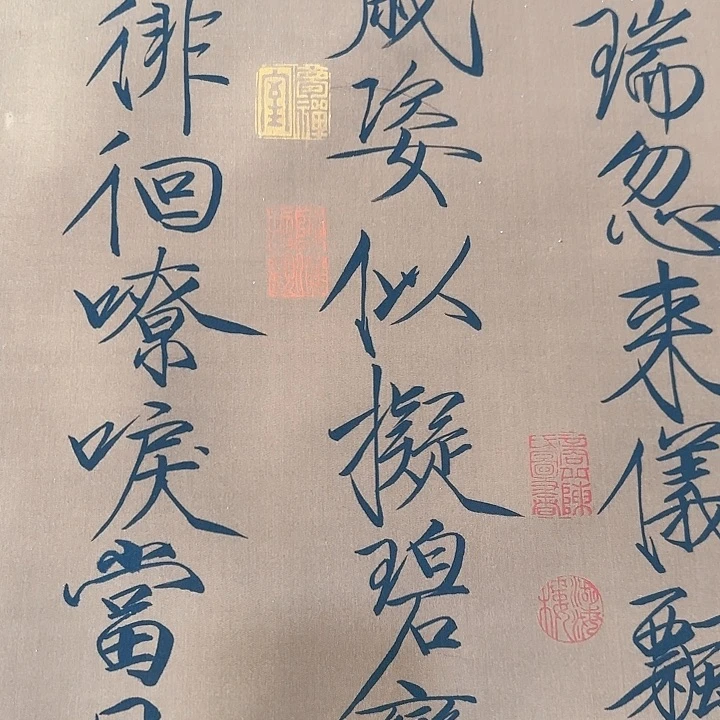 瑞忽来儀飄
歲姿似擬碧
徘徊嘹唳當